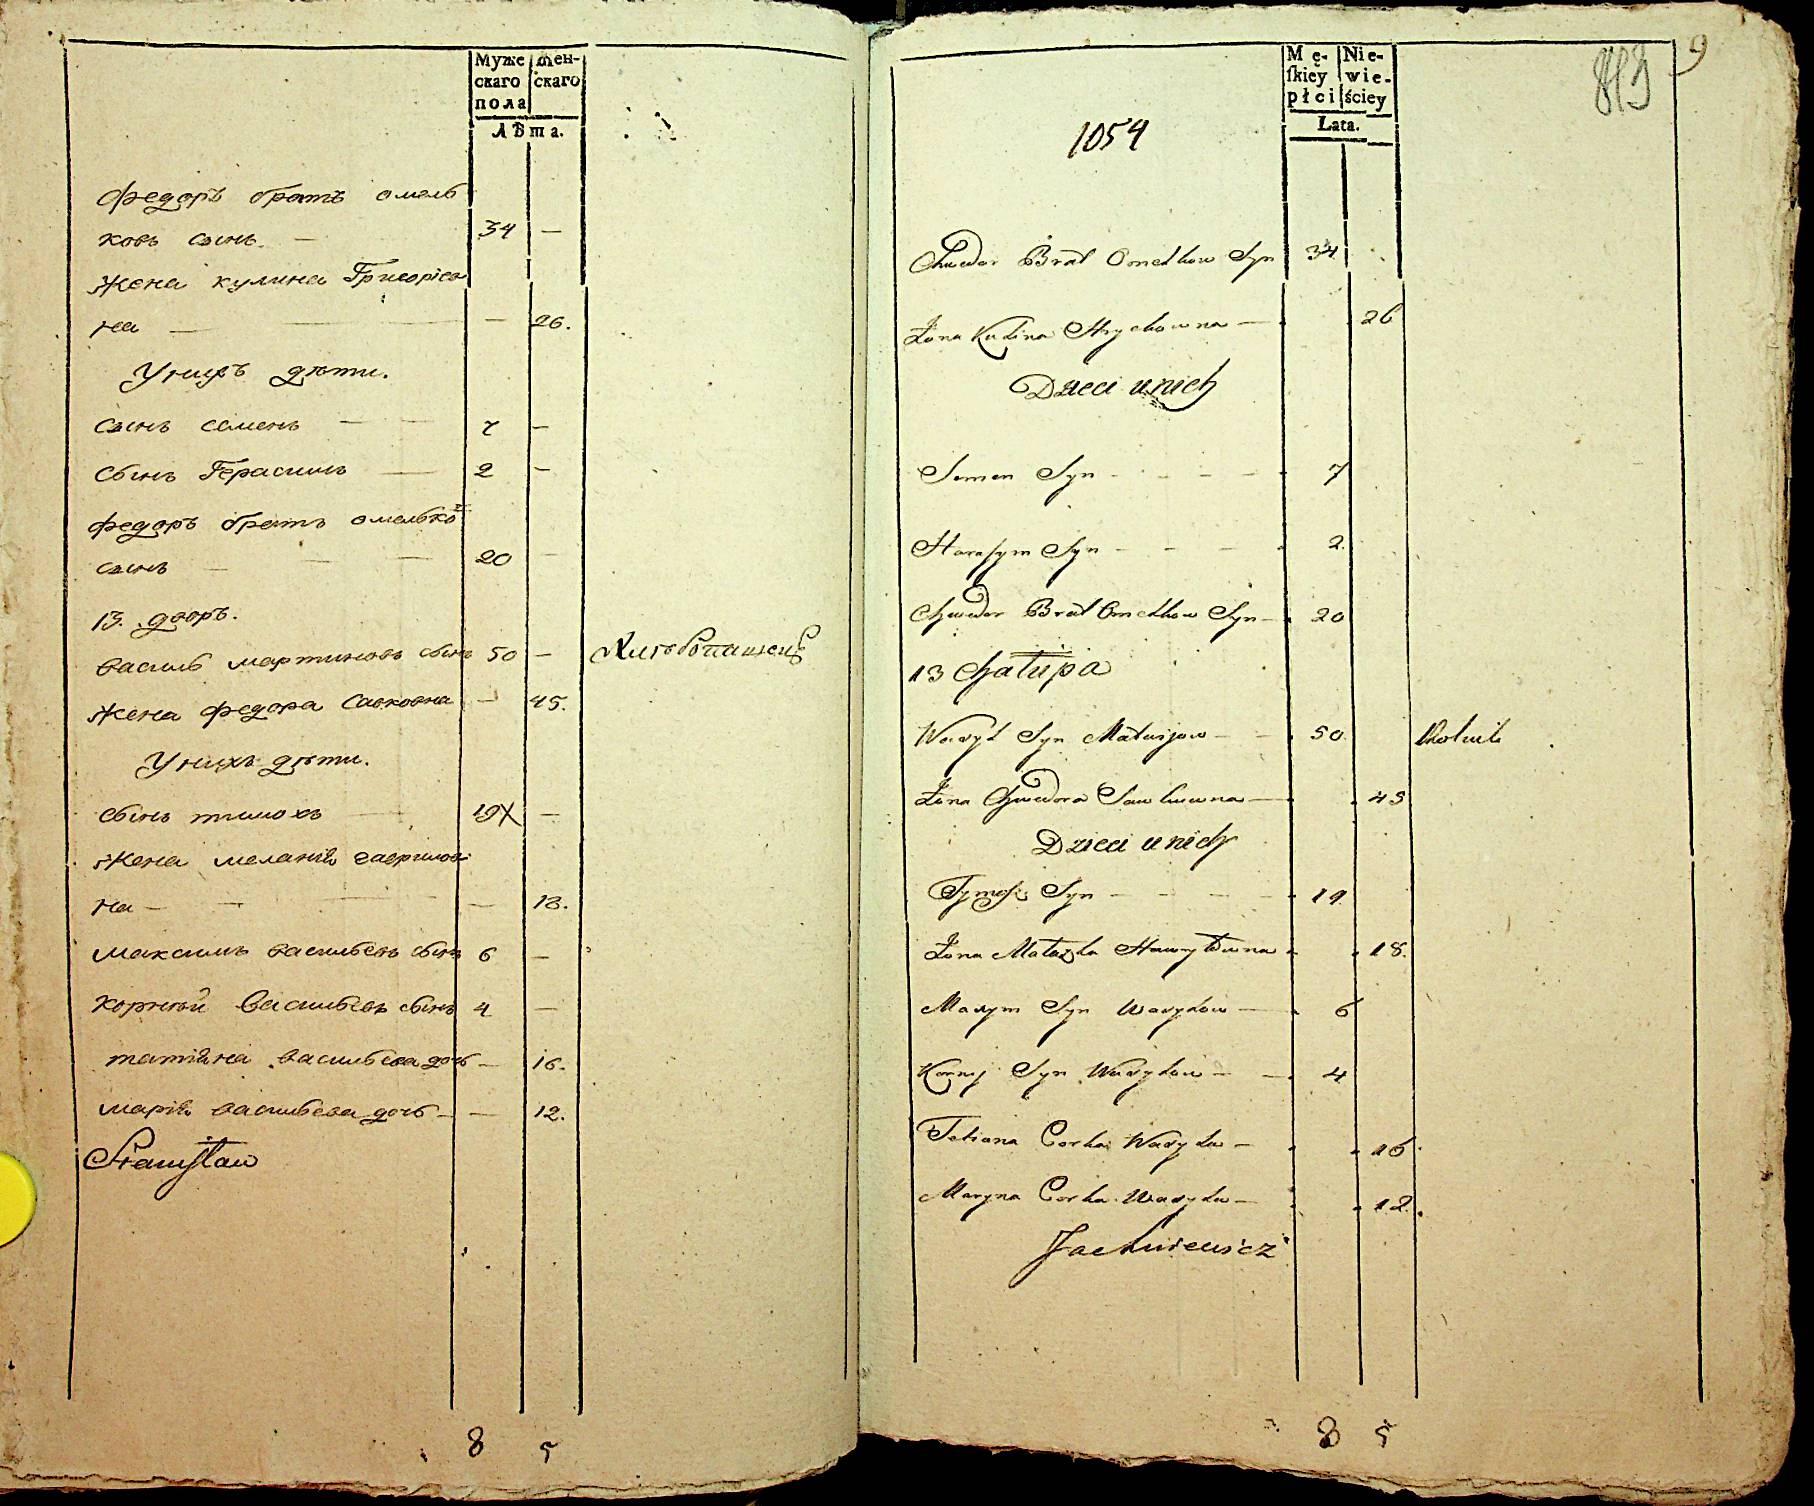 Муже
скаго
пола
Жен-
скаго
лѣта.
федоръ братъ омель
ковъ сынъ — 34 —
жена кулина Григоріев
на — — 26.
У нихъ дѣти.
сынъ семенъ — 7 —
сынъ Герасимъ — 2 —
федоръ братъ омелько
сынъ — 20 —
13. дворъ.
василь мартиновъ сынъ 50 — Хлѣбопашецъ
жена федора савковна — 45.
У нихъ дѣти.
сынъ тимохъ 19X —
жена меланія гаврилов
на — — 18.
максимъ васильевъ сынъ 6 —
корній васильевъ сынъ 4 —
татіяна васильева дочь — 16.
марія васильева дочь — — 12.
Stanisław
8 5
9
813
Mę-
ſkiey
płci
Nie-
wie-
ściey
Lata.
1054
Chwedor Brat Omelkow Syn 34
Żona Kulina Hrychowna — 26
Dzieci u nich
Semen Syn - - - 7
Harasym Syn - - - 2
Chwedor Brat Omelkow Syn — 20
13 Chałupa
Wasyl Syn Matwijow — 50 Rolnik
Żona Chwedora Sawkuwna — 45
Dzieci u nich
Tymosz Syn - - - 19
Żona Małazka Hawryłowna 18.
Maxym Syn Wasylow — 6
Korny Syn Wasylow — 4
Tetiana Corka Wasyla — 16
Maryna Corka Wasyla — 12.
Jachniewicz
8 5